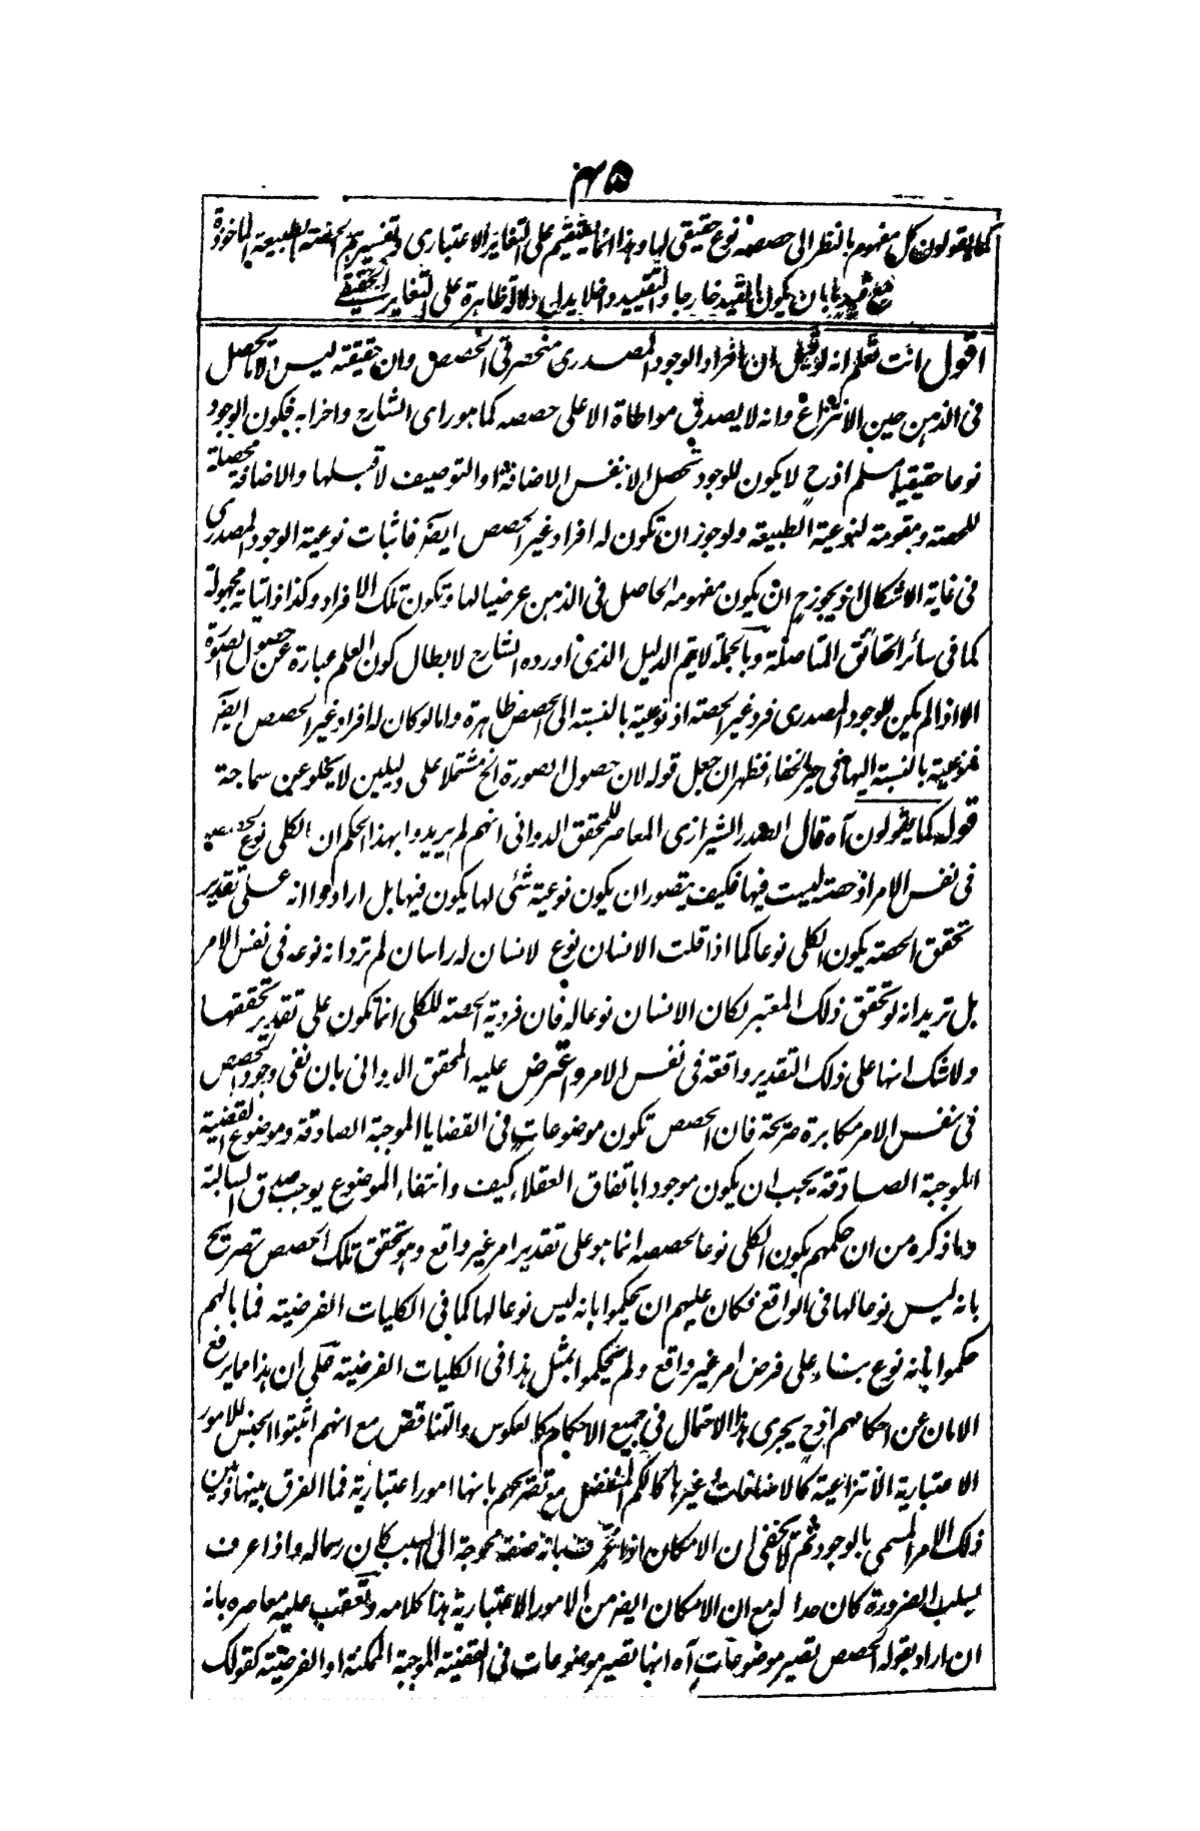 كما يقولون كل مفهوم بالنظر الى حصصه نوع حقيقي لها وهذا انما يستقيم على التغاير الاعتبارى وتفسيرهم الحصة بالطبيعة الماخوذة
مع قيد ما بان يكون القيد خارجا والتقييد داخلا يدل دلالة ظاهرة على التغاير الحقيقى
اقول انت تعلم انه لو قيل ان افراد الوجود المصدرى منحصر فى الحصص وان حقيقته ليس الا ما يحصل
فى الذهن حين الانتزاع وانه لا يصدق مواطاة الا على حصصه كما هو راى الشارح واخرابه فكون الوجود
نوعا حقيقيا مسلم اذ ح لا يكون للوجود تحصل الا بنفس الاضافة او التوصيف لا قبلها والاضافة محصلة
للحصة ومقومة لنوعية الطبيعة ولو جوز ان تكون له افراد غير الحصص ايضا فاثبات نوعية الوجود المصدرى
فى غاية الاشكال اذ يجوز ح ان يكون مفهومه الحاصل فى الذهن عرضيا لها وتكون تلك الافراد وكذا ذاتياته مجهولة
كما فى سائر الحقائق المتاصلة وبالجملة لا يتم الدليل الذى اورده الشارح لابطال كون العلم عبارة عن حصول الصورة
الا اذا لم يكن للوجود المصدرى فرد غير الحصة اذ نوعيته بالنسبة الى الحصص ظاهرة واما لو كان له افراد غير الحصص ايضا
فنوعيته بالنسبة اليها فى حيز الخفاء فظهر ان جعل قوله لان حصول الصورة الخ مشتملا على دليلين لا يخلو عن سماجة
قوله كما يقولون آه قال الصدر الشيرازى المعاصر للمحقق الدوانى انهم لم يريدوا بهذا الحكم ان الكلى نوع للحصة
فى نفس الامر اذ حصته ليست فيها فكيف يتصور ان يكون نوعية شئى لها يكون فيها بل ارادوا انه على تقدير
تحقق الحصة يكون الكلى نوعا كما اذا قلت الانسان نوع لانسان له راسان لم ترد انه نوعه فى نفس الامر
بل تريد انه لو تحقق ذلك المعتبر لكان الانسان نوعا له فان فردية الحصة للكلى انما تكون على تقدير تحققها
ولا شك انها على ذلك التقدير واقعة فى نفس الامر واعترض عليه المحقق الدوانى بان نفى وجود الحصص
فى نفس الامر مكابرة صريحة فان الحصص تكون موضوعات فى القضايا الموجبة الصادقة وموضوع القضية
الموجبة الصادقة يجب ان يكون موجودا باتفاق العقلاء كيف وانتفاء الموضوع يوجب صدق السالبة
وما ذكره من ان حكمهم بكون الكلى نوعا لحصصه انما هو على تقدير امر غير واقع وهو تحقق تلك الحصص تصريح
بانه ليس نوعا لها فى الواقع فكان عليهم ان يحكموا بانه ليس نوعا لها كما فى الكليات الفرضية فما بالهم
حكموا بانه نوع بناء على فرض امر غير واقع ولم يحكموا بمثل هذا فى الكليات الفرضية على ان هذا مما يرفع
الامان عن احكامهم اذ ح يجرى هذا الاحتمال فى جميع الاحكام كالعكوس والتناقض مع انهم اثبتوا الجنس للامور
الاعتبارية الانتزاعية كالاضافات وغيرها كالكم المنفصل مع تصريحهم بانها امور اعتبارية فما الفرق بينها وبين
ذلك الامر المسمى بالوجود ثم لا يخفى ان الامكان اذا عرف بانه صفة محوجة الى السبب كان رسما له واذا عرف
بسلب الضرورة كان حدا له مع ان الامكان ايضا من الامور الاعتبارية هذا كلامه وتعقب عليه معاصره بانه
ان اراد بقوله الحصص تصير موضوعات آه انها تصير موضوعات فى القضية الموجبة الممكنة او الفرضية كقولك